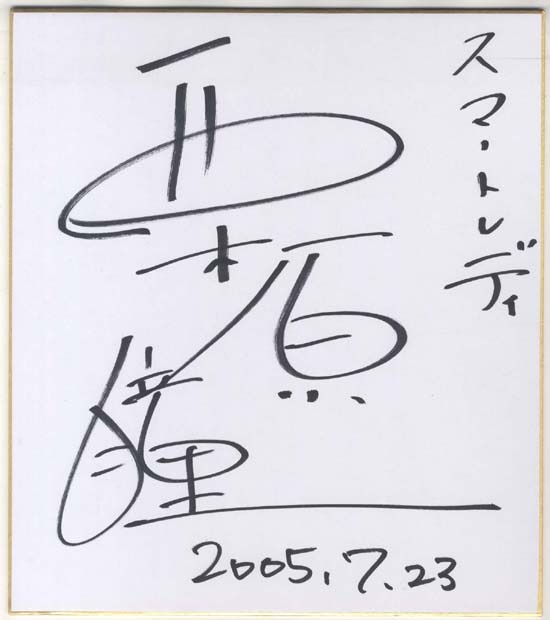 スマートレディ
栗原
瞳
2005.7.23